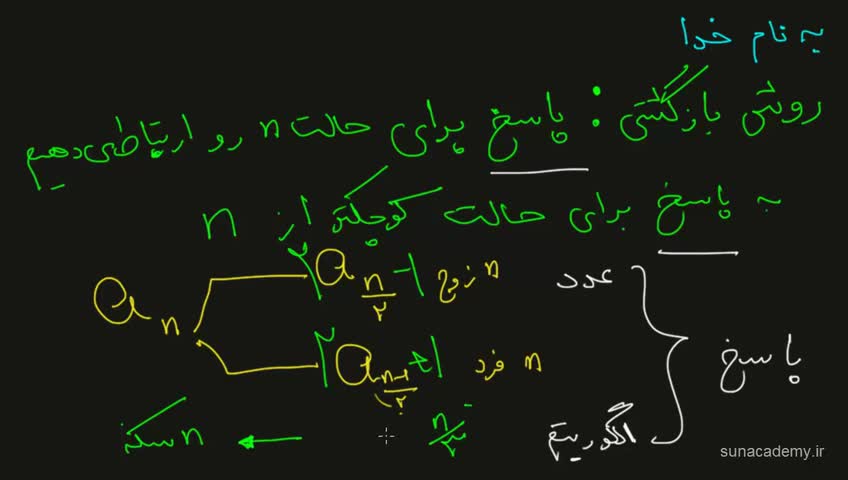 به نام خدا
روش بازگشتی : پاسخ برای حالت n رو ارتباط می دهیم
به پاسخ برای حالت کوچکتر از n
a_n
۲a_{n/۲} - ۱ n زوج
۲a_{(n-۱)/۲} + ۱ n فرد
پاسخ
عدد
الگوریتم
n سکه ← n/۲
sunacademy.ir